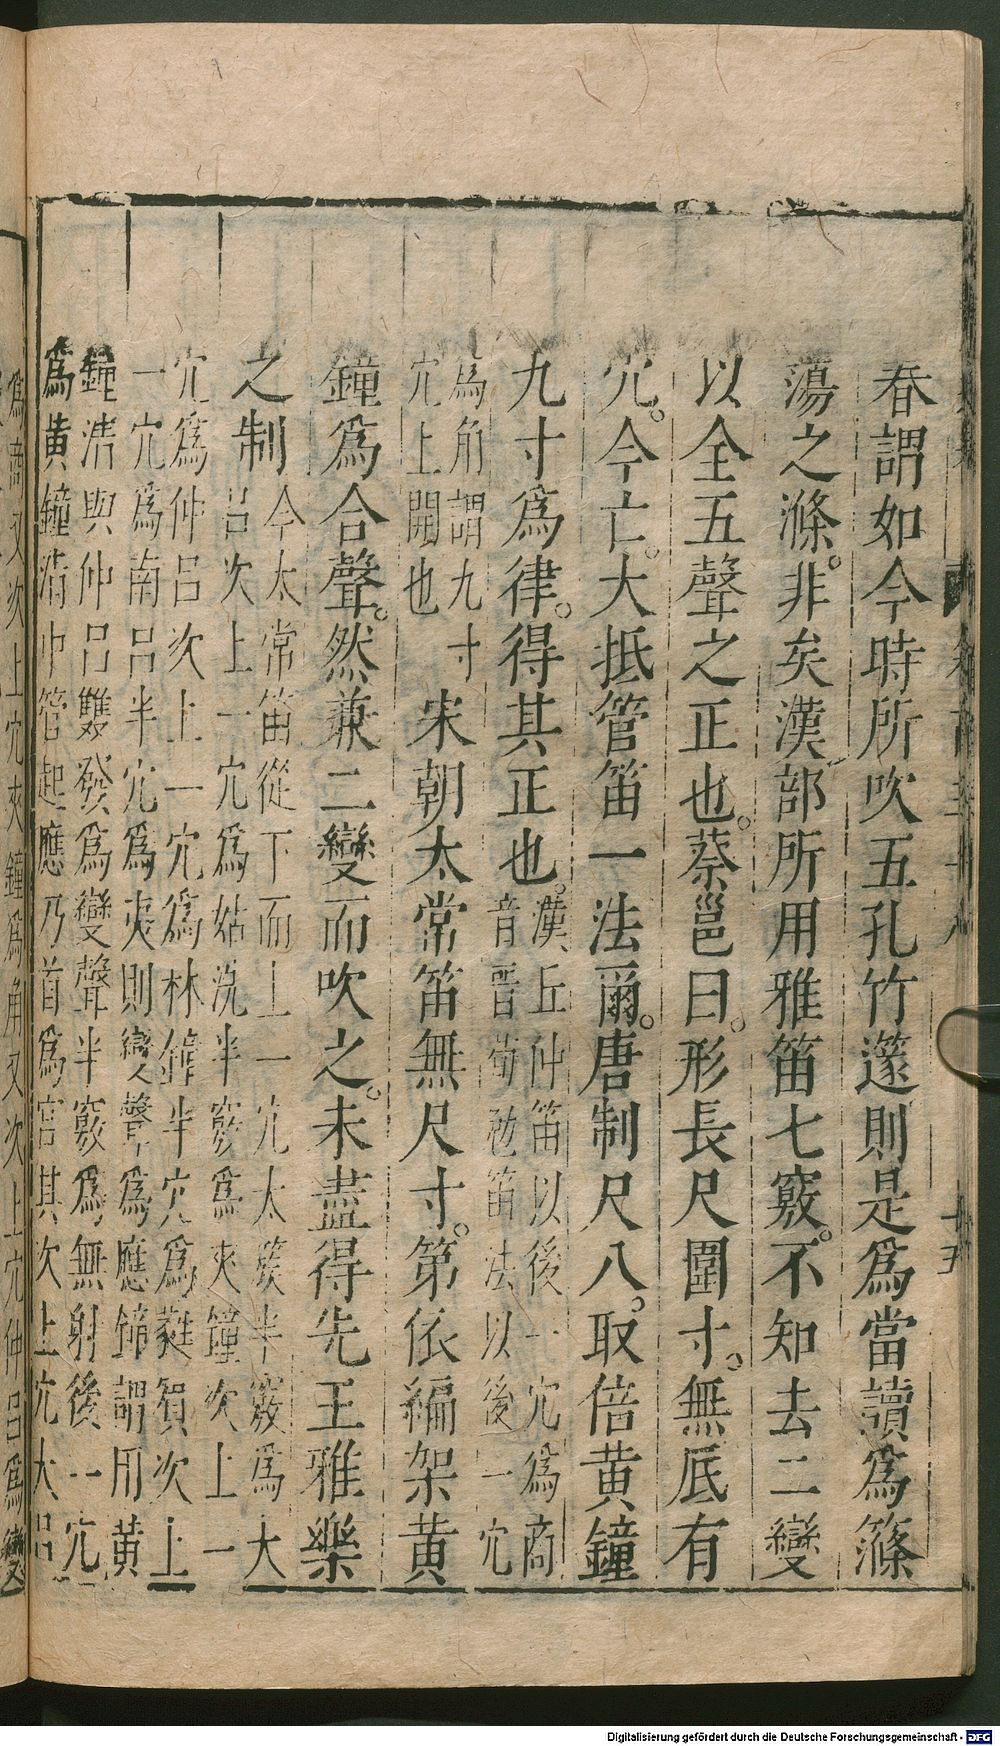 春謂如今時所吹五孔竹篴則是爲當讀爲滌
蕩之滌。非矣漢部所用雅笛七竅。不知去二變
以全五聲之正也。蔡邕曰。形長尺圍寸。無底有
穴。今亡。大抵管笛一法爾。唐制尺八。取倍黃鐘
九寸爲律。得其正也。
漢丘仲笛以後一穴爲商
音晉荀勗笛法以後一穴
爲角謂九寸
穴上開也
宋朝太常笛無尺寸。第依編架黃
鐘爲合聲。然兼二變而吹之。未盡得先王雅樂
之制
今太常笛從下而上一穴太簇半竅爲大
呂次上一穴爲姑洗半竅爲夾鐘次上一
穴爲仲呂次上一穴爲林鐘半穴爲蕤賓次上
一穴爲南呂半穴爲夷則變聲爲應鐘謂用黃
鐘清與仲呂雙發爲變聲半竅爲無射後一穴
爲黃鐘清中管起應乃首爲宮其次上穴大呂
爲商又次上穴夾鐘爲角又次上穴仲呂爲變
Digitalisierung gefördert durch die Deutsche Forschungsgemeinschaft - DFG